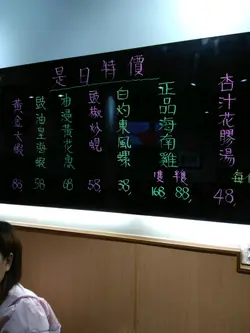 是日特價
杏汁花膠湯 48.
每
正品海南雞
隻 168.
88.
白灼東風螺 58.
豉椒炒蜆 58.
油浸黃花魚 68.
豉油皇海蝦 58.
黃金大蝦 88.